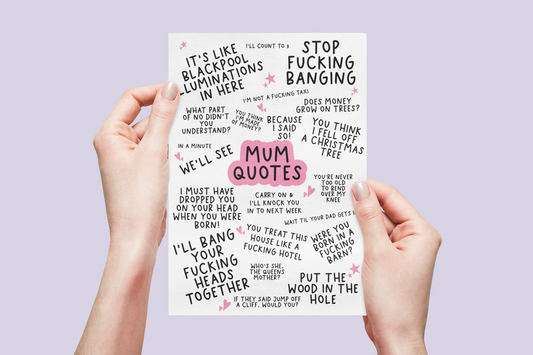 IT'S LIKE
BLACKPOOL
ILLUMINATIONS
IN HERE
I'LL COUNT TO 3
STOP
FUCKING
BANGING
I'M NOT A FUCKING TAXI
DOES MONEY
GROW ON TREES?
WHAT PART
OF NO DIDN'T
YOU
UNDERSTAND?
YOU THINK
I'M MADE
OF MONEY?
BECAUSE
I SAID
SO!
YOU THINK
I FELL OFF
A CHRISTMAS
TREE
IN A MINUTE
WE'LL SEE
MUM
QUOTES
YOU'RE NEVER
TOO OLD
TO BEND
OVER MY
KNEE
I MUST HAVE
DROPPED YOU
ON YOUR HEAD
WHEN YOU WERE
BORN!
CARRY ON &
I'LL KNOCK YOU
IN TO NEXT WEEK
WAIT TIL YOUR DAD GETS
I'LL BANG
YOUR
FUCKING
HEADS
TOGETHER
YOU TREAT THIS
HOUSE LIKE A
FUCKING HOTEL
WERE YOU
BORN IN A
FUCKING
BARN?
WHO'S SHE,
THE QUEENS
MOTHER?
PUT THE
WOOD IN THE
HOLE
IF THEY SAID JUMP OFF
A CLIFF, WOULD YOU?